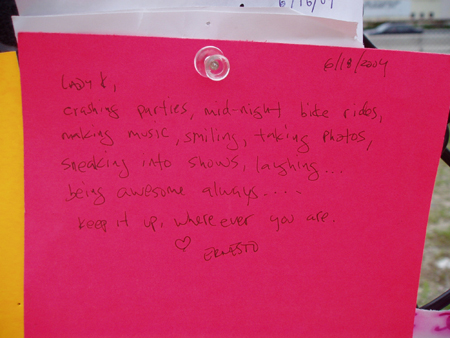 6/16/01
6/18/2004
Lady K,
crashing parties, mid-night bike rides,
making music, smiling, taking photos,
sneaking into shows, laughing...
being awesome always....
keep it up, where ever you are.
♡ ERNESTO